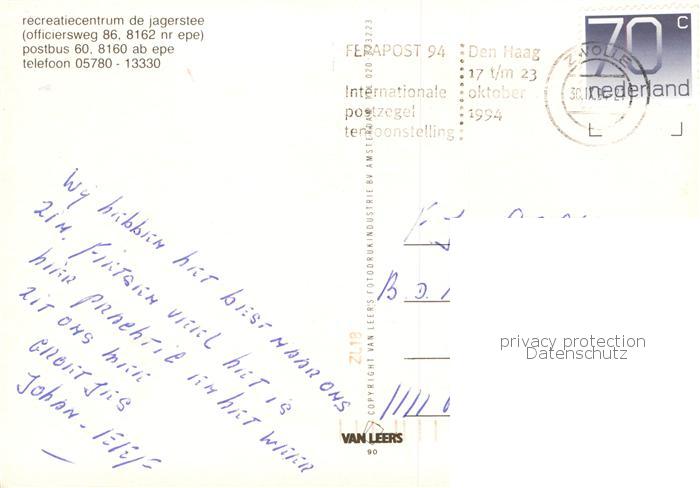 recreatiecentrum de jagerstee
(officiersweg 86, 8162 nr epe)
postbus 60, 8160 ab epe
telefoon 05780 - 13330
FEPAPOST 94
Internationale
postzegel
tentoonstelling
Den Haag
17 t/m 23
oktober
1994
ZWOLLE
70 c
nederland
Wij hebben het best naar ons
zin. Fietsen veel het is
hier prachtig en het weer
zit ons mee
Groetjes
Johan - Eef
COPYRIGHT VAN LEER'S FOTODRUKINDUSTRIE BV AMSTERDAM TEL 020
ZL18
B.D.
VAN LEERS
90
privacy protection
Datenschutz